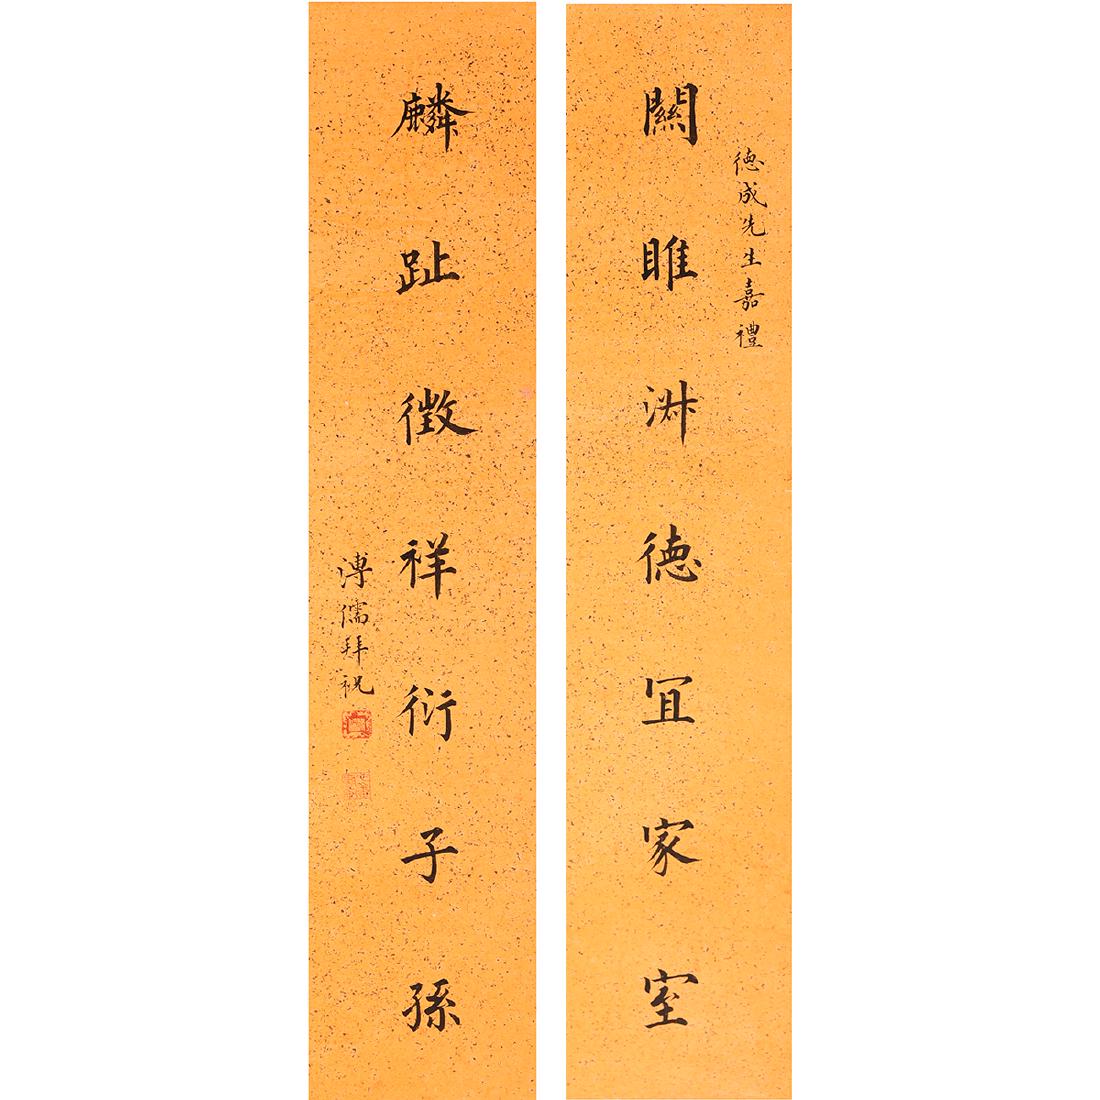 德成先生嘉禮
關雎淑德宜家室
麟趾徵祥衍子孫
溥儒拜祝